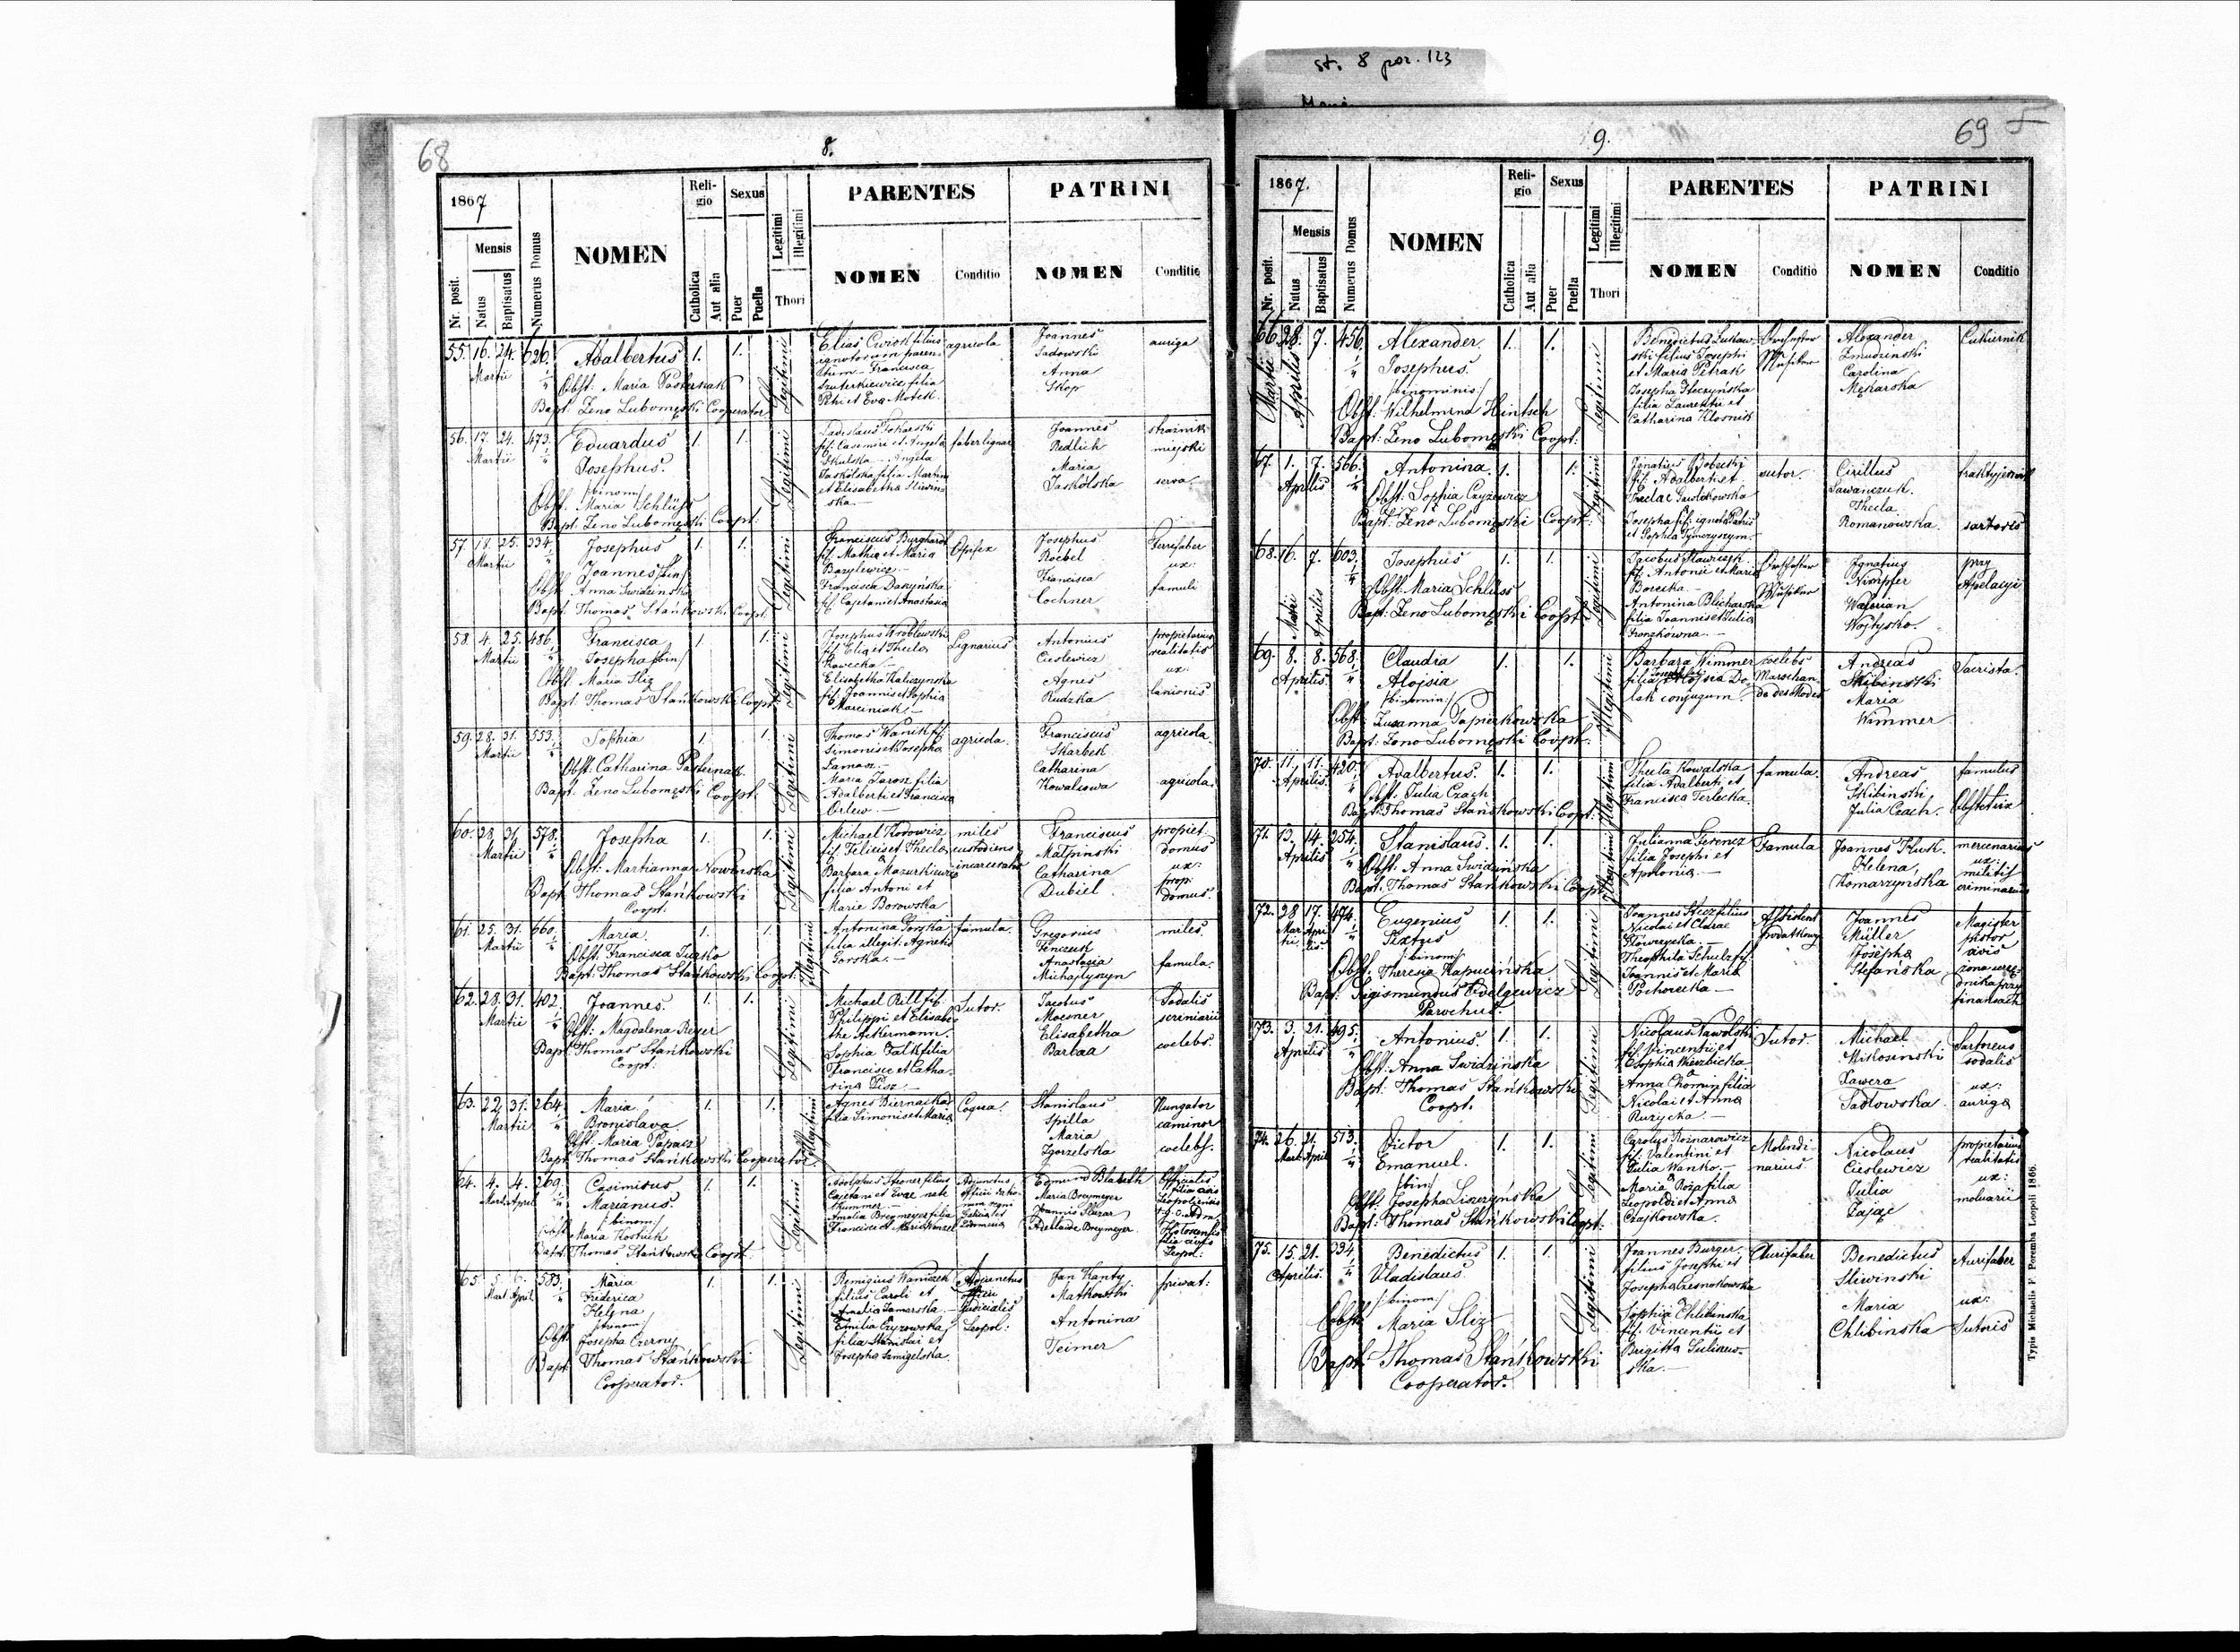 st. 8 por. 123
68
8.
1867
Mensis
Nr. posit.
Natus
Baptisatus
Numerus Domus
NOMEN
Reli-
gio
Catholica
Aut alia
Sexus
Puer
Puella
Legitimi
Illegitimi
Thori
PARENTES
NOMEN
Conditio
PATRINI
NOMEN
Conditio
55. 16. 24. 626 Adalbertus 1. 1. Legitimi
Martii
Obst: Maria Pasternak
Bapt: Zeno Lubomęski Cooperator
Francisca
filia
Petri et Eva
agricola
Joannes
Sadowski
Anna
Skop
auriga
56. 17. 24. 473. Eduardus 1. 1. Legitimi
Martii
Josephus.
/binom/
Obst. Maria Schlüss
Bapt: Zeno Lubomęski Coopt:
fil. Casimiri et Angela
Skulska Angela
Jaskólska filia Martini
et Elisabetha Sliwin-
ska
faber lignar
Joannes
Redlich
Maria
Jaskólska
strażnik
miejski
serva
57. 18. 25. 334. Josephus 1. 1. Legitimi
Martii
Joannes /bin/
Obst: Anna Swidzinska
Bapt. Thomas Stańkowski Coopt.
Franciscus Burghardt
fil. Mathia et Maria
Bazylewicz
Francisca
fil. Cajetani et Anastasia
Opifex
Josephus
Roebel
Francisca
Lochner
Ferrifaber
ux:
famuli
58. 4. 25. 486. Francisca 1. 1. Legitimi
Martii
Josepha /bin/
Obst Maria Sliz
Bapt. Thomas Stańkowski Coopt
Josephus Wróblewski
fil Elia et Thecla
Rawecka
Elisabetha Kaliczynska
fil. Joannis et Sophia
Marciniak
Lignarius
Antonius
Cieslewicz
Agnes
Rudzka
propietarius
realitatis
ux:
lanionis
59. 28. 31. 553. Sophia 1. 1. Legitimi
Martii
Obst: Catharina Pasternak
Bapt. Zeno Lubomęski Coopt.
Thomas Wanik fil
Simonis et Josepha
Maria Jarosz filia
Adalberti et Francisca
Orlew
agricola
Franciscus
Skarbek
Catharina
Kowalsowa
agricola.
agricola
60. 28. 31. 578. Josepha 1. 1. Legitimi
Martii
Obst: Martianna Nowinska
Bapt. Thomas Stańkowski
Coopt.
Michael
fil Felicis et Thecla
Barbara Mazurkiewicz
filia Antoni et
Marie Borowska
miles
custodiens
incarceratos
Franciscus
Malpinski
Catharina
Dubiel
propiet.
domus
ux:
prop:
domus.
61. 25. 31. 660. Maria 1. 1. Illegitimi
Martii
Obst. Francisca Turko
Bapt: Thomas Stańkowski Coopt.
Antonina Gorska
filia illegit. Agnetis
Gorska.
famula.
Gregorius
Anastasia
miles.
famula.
62. 28. 31. 402. Joannes 1. 1. Legitimi
Martii
Obst: Magdalena Reyer
Bapt. Thomas Stańkowski
Coopt:
Michael Rill fil
Philippi et Elisabe-
the Ackermann.
Sophia Falk filia
Francisci et Catha-
rina Pisz
Sutor.
Jacobus
Moesner
Elisabetha
Barbaa
Sodalis
scriniarii
coelebs.
63. 22. 31. 264 Maria 1. 1. Illegitimi
Martii
Bronislava.
Obst: Maria Papacz
Bapt Thomas Stańkowski Cooperator.
Agnes Biernacka
filia Simonis et Maria
Coqua.
Stanislaus
Spilla
Maria
Zgorzelska
Rungator
caminor
coelebs.
64. 4. 4. 269. Casimirus 1. 1. Legitimi
Mart. April
Marianus.
/binom/
Obst Maria Kostiuk
Bapt. Thomas Stańkowski Coopt.
Adolphus filius
Cajetani et Evae nate
Amalia Breymeyer filia
Francisci et Maria
Adjunctus
officii
Edmund Blaboth
Maria Breymeyer
Joannis
Adelaide Breymeyer
Officialis
Leopol:
65. 5. 6. 583. Maria 1. 1. Legitimi
Mart. April
Friderica
Helena
/trinom/
Obst. Josepha Czerny
Bapt. Thomas Stańkowski
Cooperator.
Remigius Waniczek
filius Caroli et
Amalia Tamarska
Emilia Czyzowska
filia Stanislai et
Josepha Smigelska
Adjunctus
officii
Judicialis
Leopol:
Jan Kanty
Matkowski
Antonina
Teimer
privat:
69
9.
1867.
Mensis
Nr. posit.
Natus
Baptisatus
Numerus Domus
NOMEN
Reli-
gio
Catholica
Aut alia
Sexus
Puer
Puella
Legitimi
Illegitimi
Thori
PARENTES
NOMEN
Conditio
PATRINI
NOMEN
Conditio
66. 28. 7. 456. Alexander 1. 1. Legitimi
Martii Aprilis
Josephus.
/binominis/
Obst. Wilhelmina Hintsch
Bapt: Zeno Lubomęski Coopt:
Benedictus Łukaw-
ski filius Josephi
et Maria Petrak
Josepha
filia Laurentii et
Catharina Klosnik
Alexander
Zmudzinski
Carolina
Mękarska
Cukiernik
67. 1. 7. 566. Antonina 1. 1. Legitimi
Aprilis
Obst: Sophia Czyżewicz
Bapt. Zeno Lubomęski Coopt:
Ignatius Bobecki
fil. Adalberti et
Theclae
Josepha fil. ignoti Patris
et Sophia
sutor.
Cirillus
Sawanczuk.
Thecla
Romanowska.
traktyjernik
sartoris
68. 16. 7. 603. Josephus 1. 1. Legitimi
Martii Aprilis
Obst: Maria Schlüss
Bapt: Zeno Lubomęski Coopt
Jacobus Stawicski
fil. Antonii et Maria
Borecka
Antonina Blicharska
filia Joannis et Julia
Ignatius
Nimpfer
Walerian
Wojtysko.
przy
Apelacyi
69. 8. 8. 568. Claudia 1. 1. Illegitimi
Aprilis
Alojsia
/binomin/
Obst: Zusanna Papierkowska
Bapt: Zeno Lubomęski Coopt:
Barbara Wimmer
filia Josephi et Alojsia Do-
lak conjugum.
coelebs
Marschan-
de des Modes
Andreas
Skibinski
Maria
Wimmer.
Sacrista.
70. 11. 11. 420. Adalbertus. 1. 1. Illegitimi
Aprilis
Obst: Julia Czach
Bapt: Thomas Stańkowski Coopt:
Thecla Kowalska
filia Adalberti et
Francisca Terlecka.
famula.
Andreas
Skibinski
Julia Czach.
famulus
Obstetrix
71. 13. 14. 254. Stanislaus. 1. 1. Illegitimi
Aprilis
Obst: Anna Swidzińska
Bapt. Thomas Stańkowski Coopt
Julianna Ferencz
filia Josephi et
Apolonia.
Famula
Joannes Kruk.
Helena
Komarzyńska
mercenarius
ux:
militis
criminarius
72. 28 17. 474. Eugenius 1. 1. Legitimi
Mar-
tii. Apri-
lis
Sixtus
/binom/
Obst. Theresia Kapucińska
Bapt. Sigismundus Odelgiewicz
Parochus.
Joannes Stecz filius
Nicolai et Clarae
Theophila Schulz fil
Joannis et Maria
Pochorecka
Assistent
podatkowy
Joannes
Müller
Josepha
Stefańska
Magister
pistor
civis
73. 3. 21. 495. Antonius. 1. 1. Legitimi
Aprilis
Obst: Anna Swidzińska
Bapt. Thomas Stańkowski
Coopt.
Nicolaus Nawolski
fil Vincentii et
Sophia Wierzbicka
Anna Chomin filia
Nicolai et Anna
Ruzycka.
Sutor.
Michael
Miłosinski
Xawera
Sadlowska
Sartoreus
sodalis
ux:
auriga
74. 26. 21. 513. Victor 1. 1. Legitimi
Mart. April
Emanuel.
/bin/
Obst. Josepha Liszczyńska
Bapt: Thomas Stańkowski Copt:
Carolus Kosnarowicz
fil. Valentini et
Julia Wanko.
Maria Roza filia
Leopoldi et Anna
Czajkowska.
Molindi-
narius
Nicolaus
Cieslewicz
Julia
Zając
propietarius
realitatis
ux:
75. 15. 21. 334. Benedictus 1. 1. Legitimi
Aprilis.
Vladislaus.
/binom/
Obst: Maria Sliz
Bapt. Thomas Stańkowski
Cooperator.
Joannes Burger,
filius Josephi et
Josepha Czesnokowska
Sophia Chlibinska
fil. Vincentii et
Brigitta Sulisow-
ska.
Aurifaber
Benedictus
Sliwinski
Maria
Chlibinska
Aurifaber
ux:
Sutoris
Typis Michaelis F. Poremba Leopoli 1866.